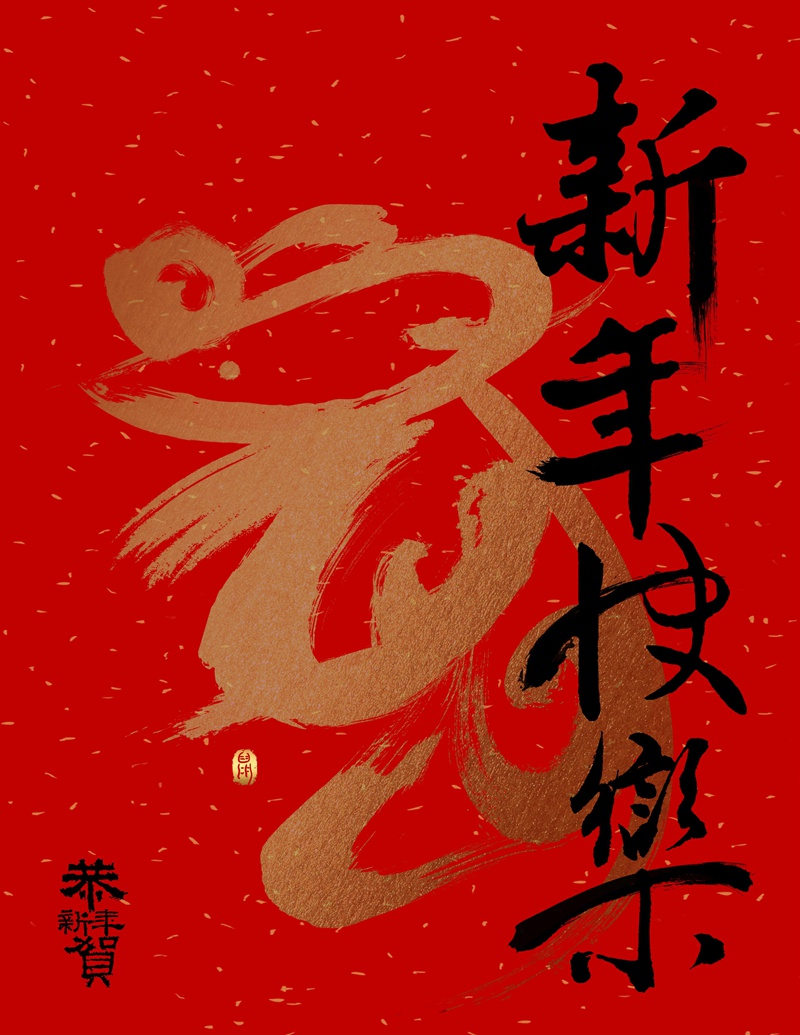 新年快樂
鼠
恭賀新年